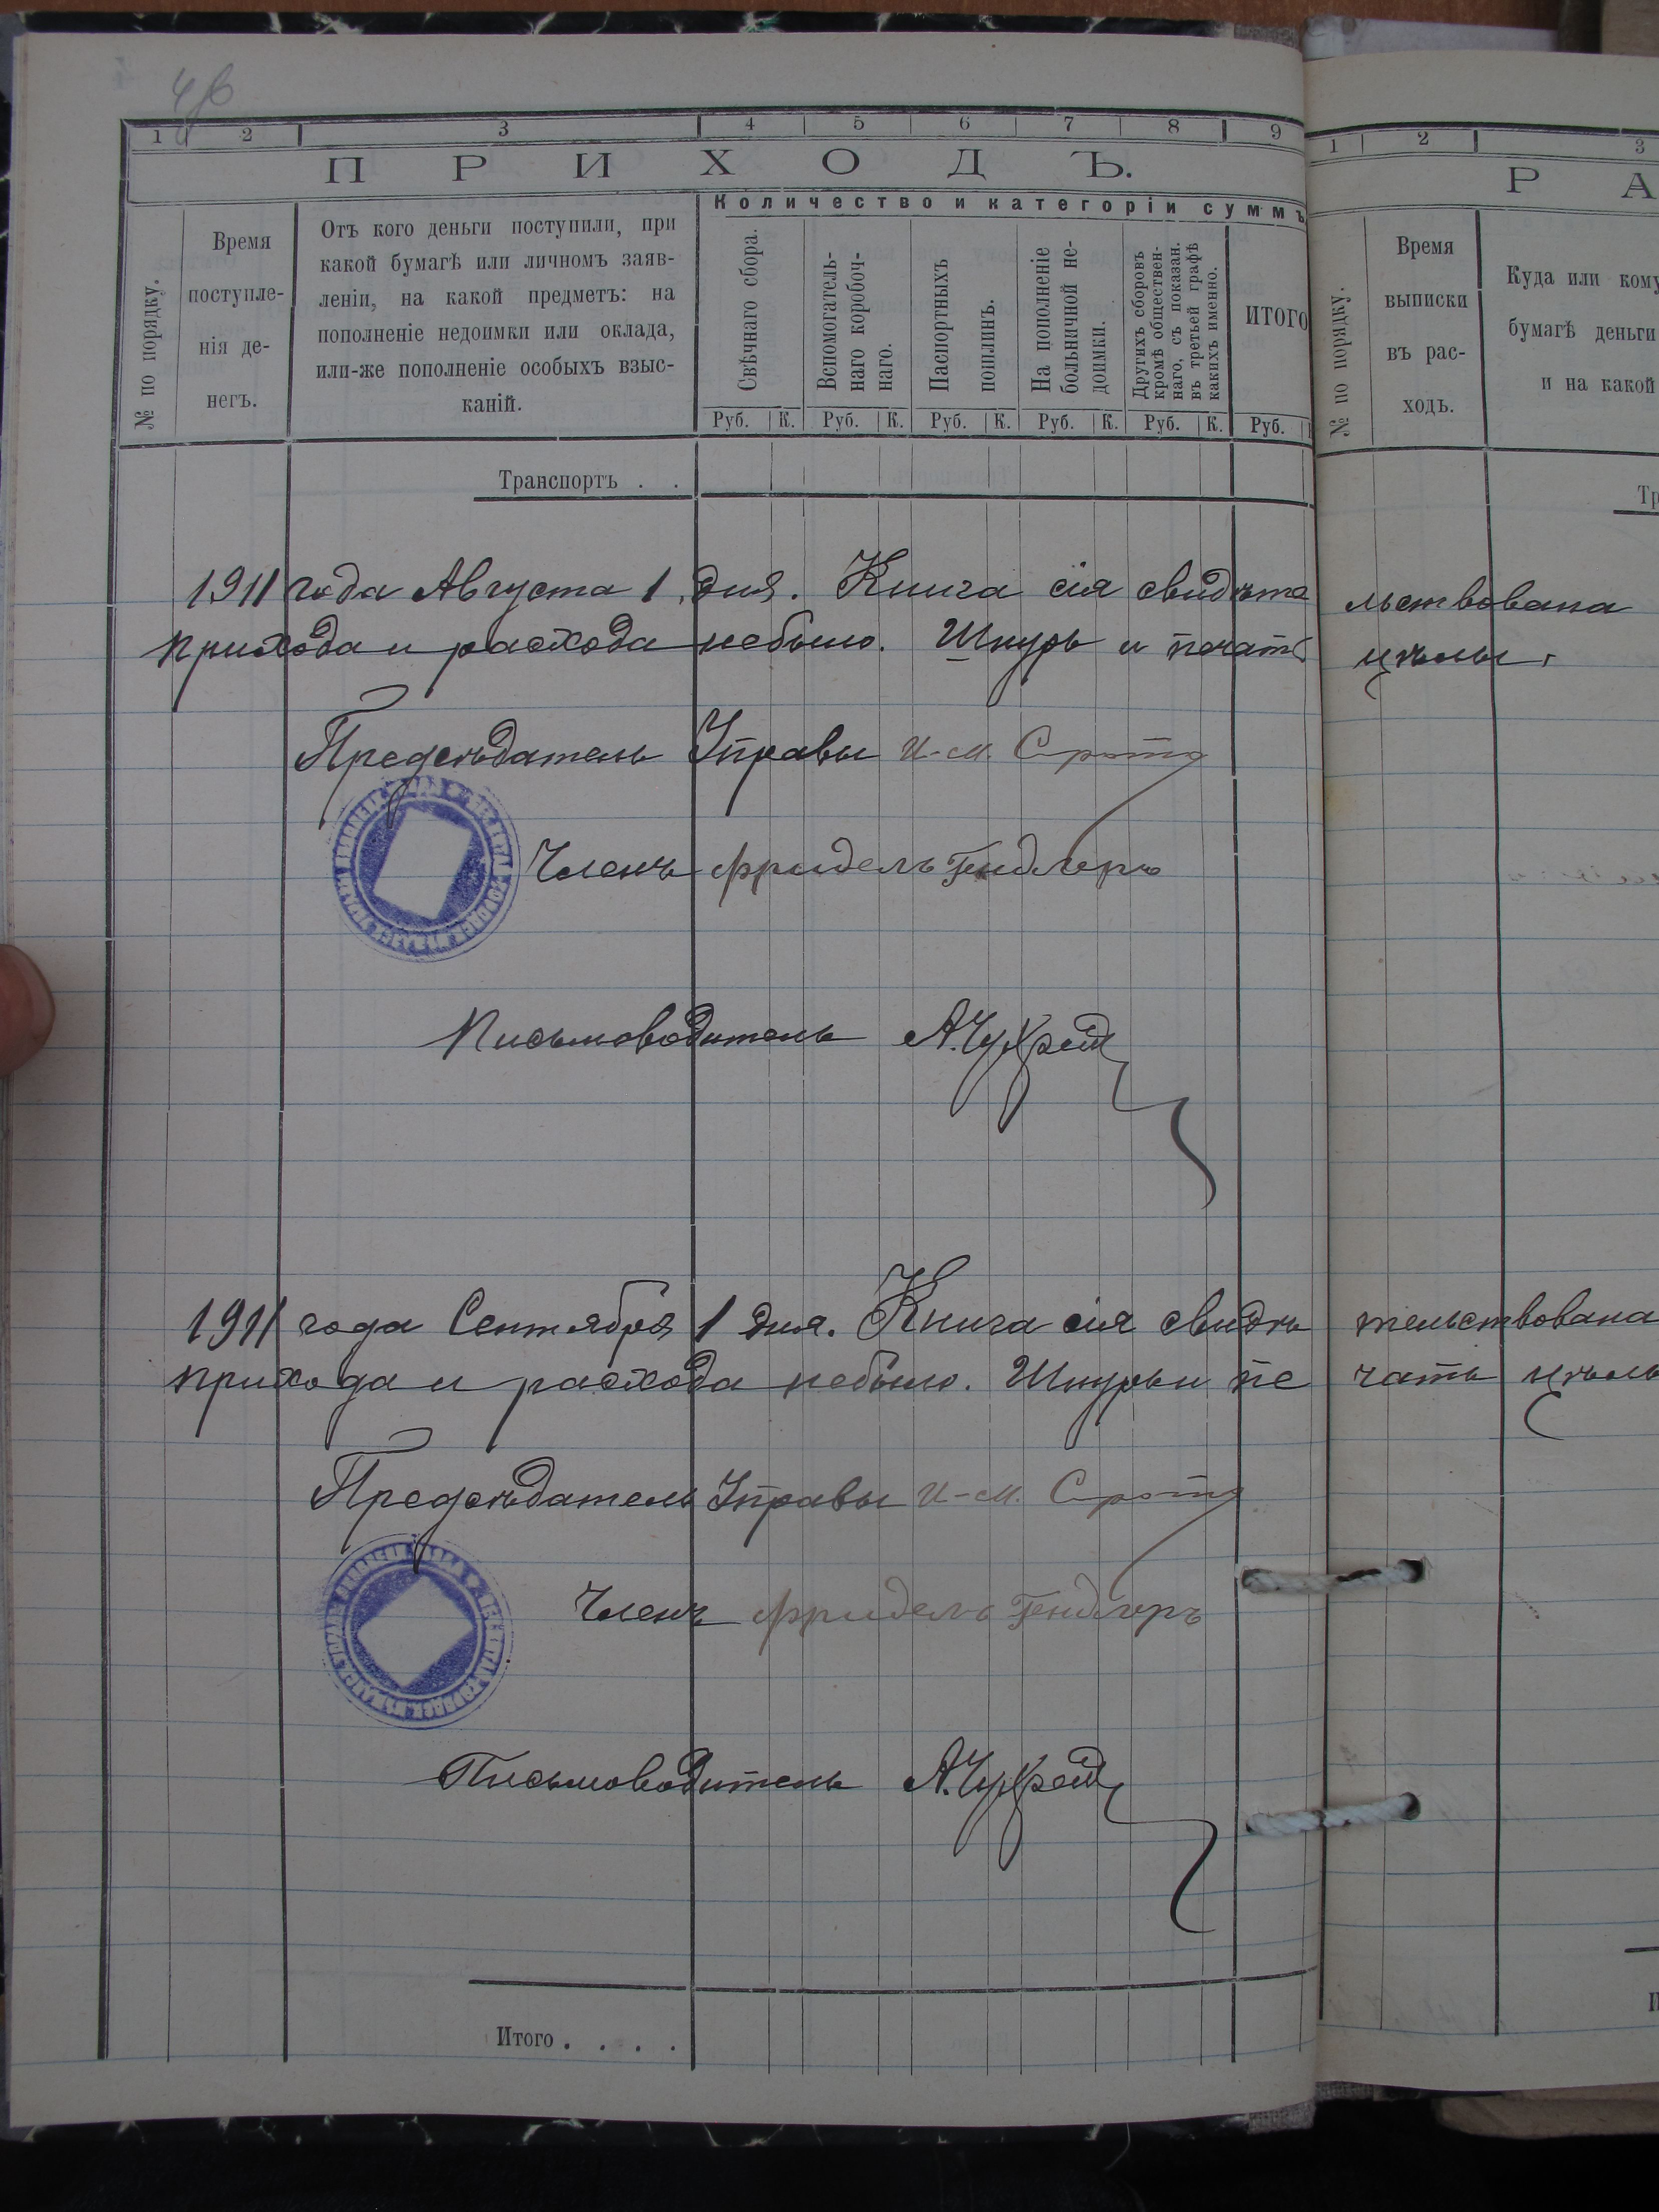 1 2 3 4 5 6 7 8 9
ПРИХОДЪ.
Количество и категоріи суммъ
№ по порядку.
Время
поступле-
нія де-
негъ.
Отъ кого деньги поступили, при
какой бумагѣ или личномъ заяв-
леніи, на какой предметъ: на
пополненіе недоимки или оклада,
или-же пополненіе особыхъ взыс-
каній.
Свѣчнаго сбора.
Вспомогатель-
наго коробоч-
наго.
Паспортныхъ
пошлинъ.
На пополненіе
больничной не-
доимки.
Другихъ сборовъ
кромѣ обществен-
наго, съ показан.
въ третьей графѣ
какихъ именно.
ИТОГО
Руб. К. Руб. К. Руб. К. Руб. К. Руб. К. Руб.
Транспортъ . .
1 2 3
РА
№ по порядку.
Время
выписки
въ рас-
ходъ.
Куда или кому
бумагѣ деньги
и на какой
Тр
1911 года Августа 1 дня. Книга сія свидѣтельствована
прихода и расхода небыло. Шнуръ и печать цѣлы.
Предсѣдатель Управы И-М.
Членъ Фридель Гендлеръ
Письмоводитель А.
1911 года Сентября 1 дня. Книга сія свидѣтельствована
прихода и расхода небыло. Шнуръ и печать цѣлы
Предсѣдатель Управы И-М.
Членъ Фридель Гендлеръ
Письмоводитель А.
Итого . . . .